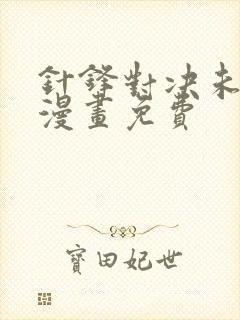 針鋒對決未
漫畫免費
寶田妃世